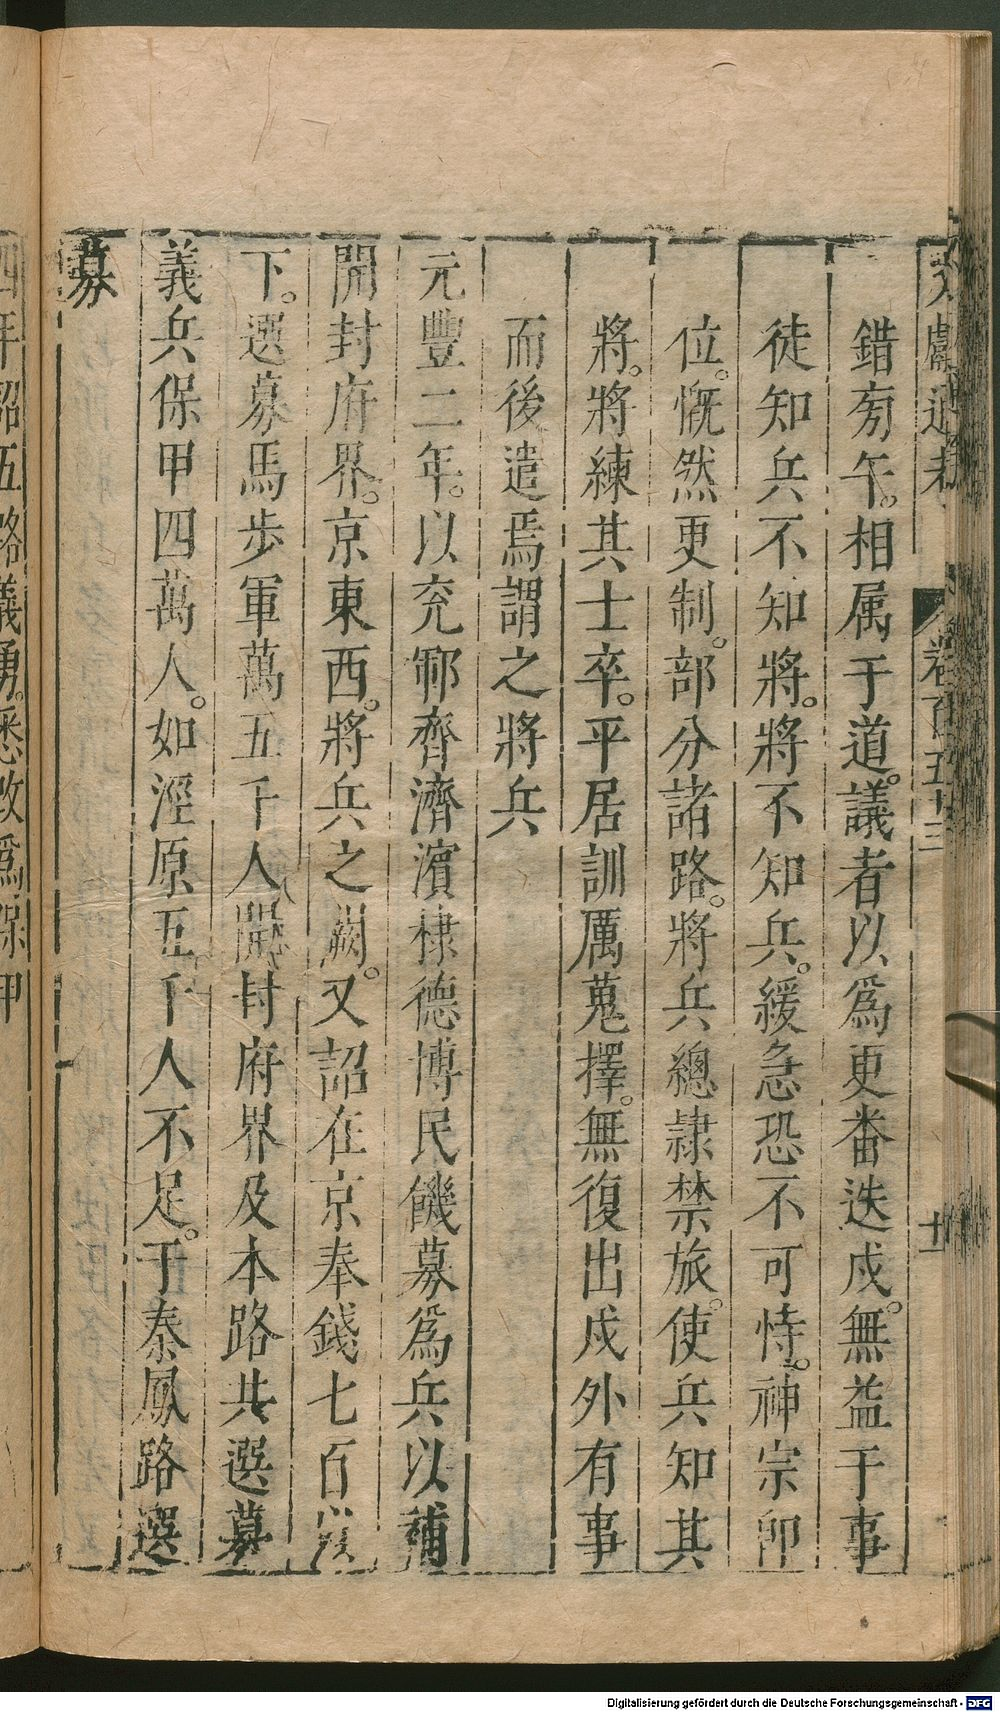 文獻通考 卷百五十三 十一
錯旁午。相属于道。議者以爲更畨迭戍。無益于事
徒知兵不知將。將不知兵。緩急恐不可恃。神宗卽
位。慨然更制。部分諸路。將兵總隷禁旅。使兵知其
將。將練其士卒。平居訓厲蒐擇。無復出戍外有事
而後遣焉謂之將兵
元豐二年。以兖鄆齊濟濱棣德博民饑募爲兵以補
開封府界。京東西。將兵之闕。又詔在京奉錢七百以
下。選募馬步軍萬五千人開封府界及本路共選募
義兵保甲四萬人。如涇原五千人不足。于秦鳳路選
募
四年詔五路義勇。悉改爲保甲
Digitalisierung gefördert durch die Deutsche Forschungsgemeinschaft - DFG